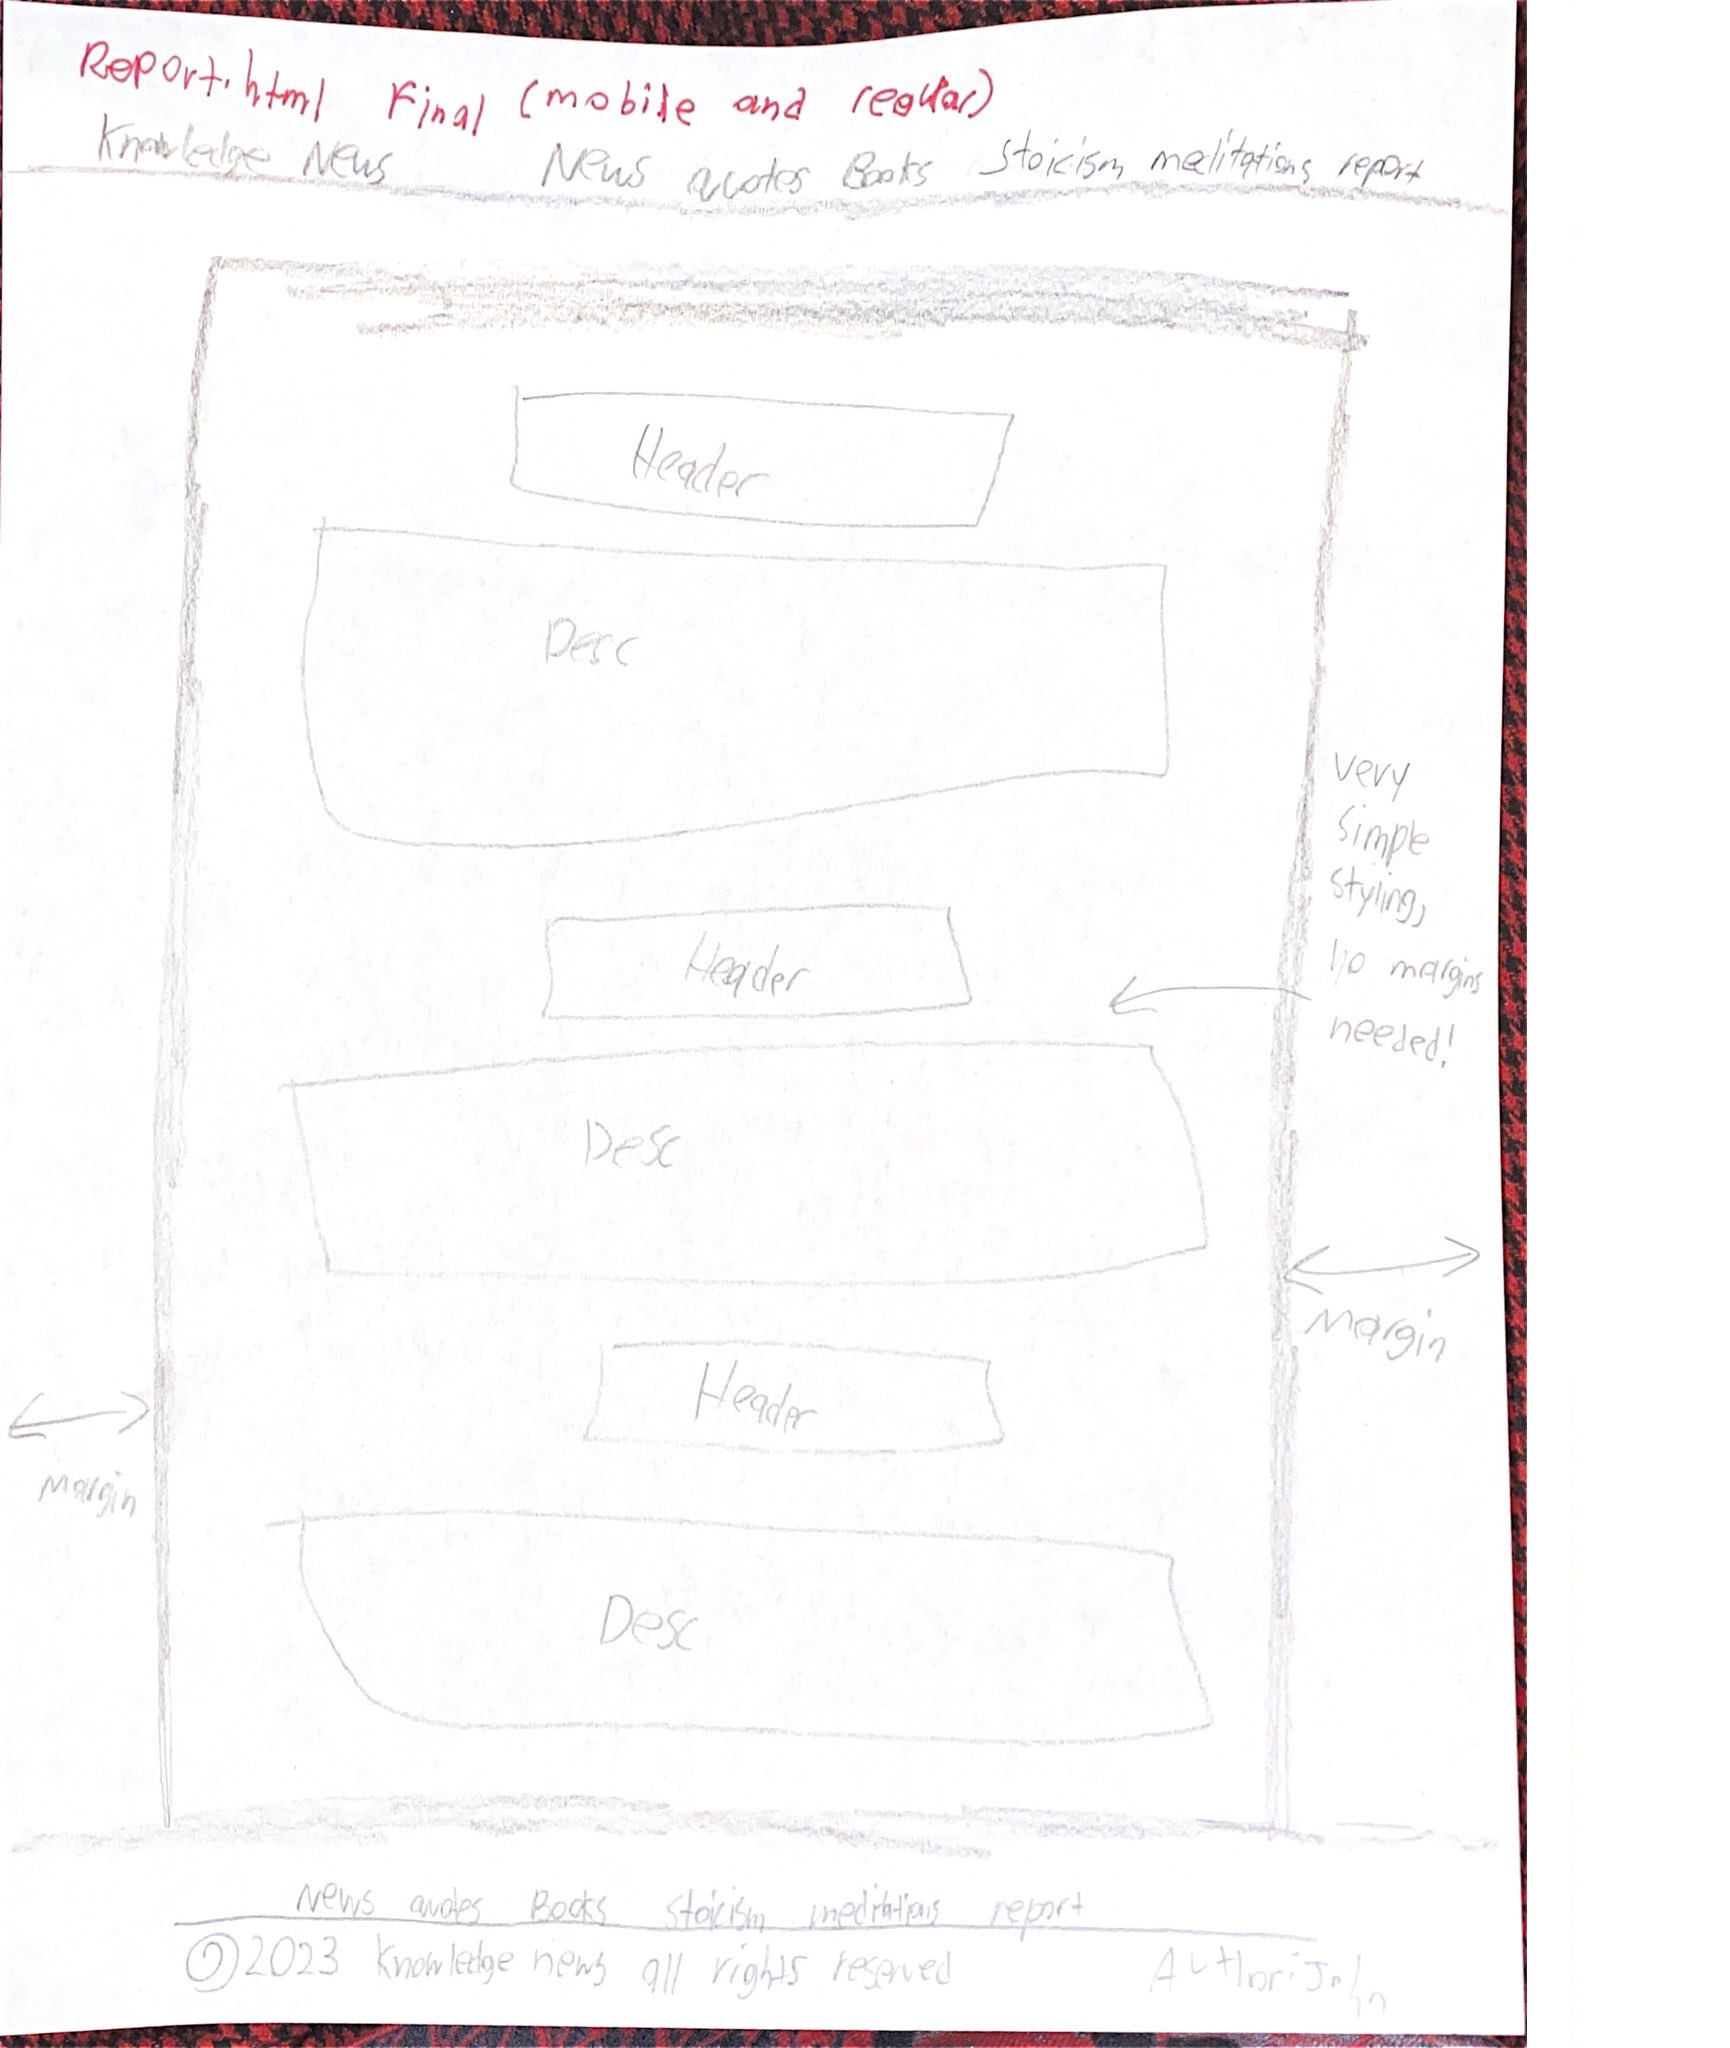 Report.html Final (mobile and reguar)
Knowledge News News quotes Books Stoicism meditations report
Header
Desc
very
simple
styling,
no margins
needed!
Header
Desc
Margin
Header
margin
Desc
News quotes Books stoicism meditations report
©2023 Knowledge news all rights reserved Author: John